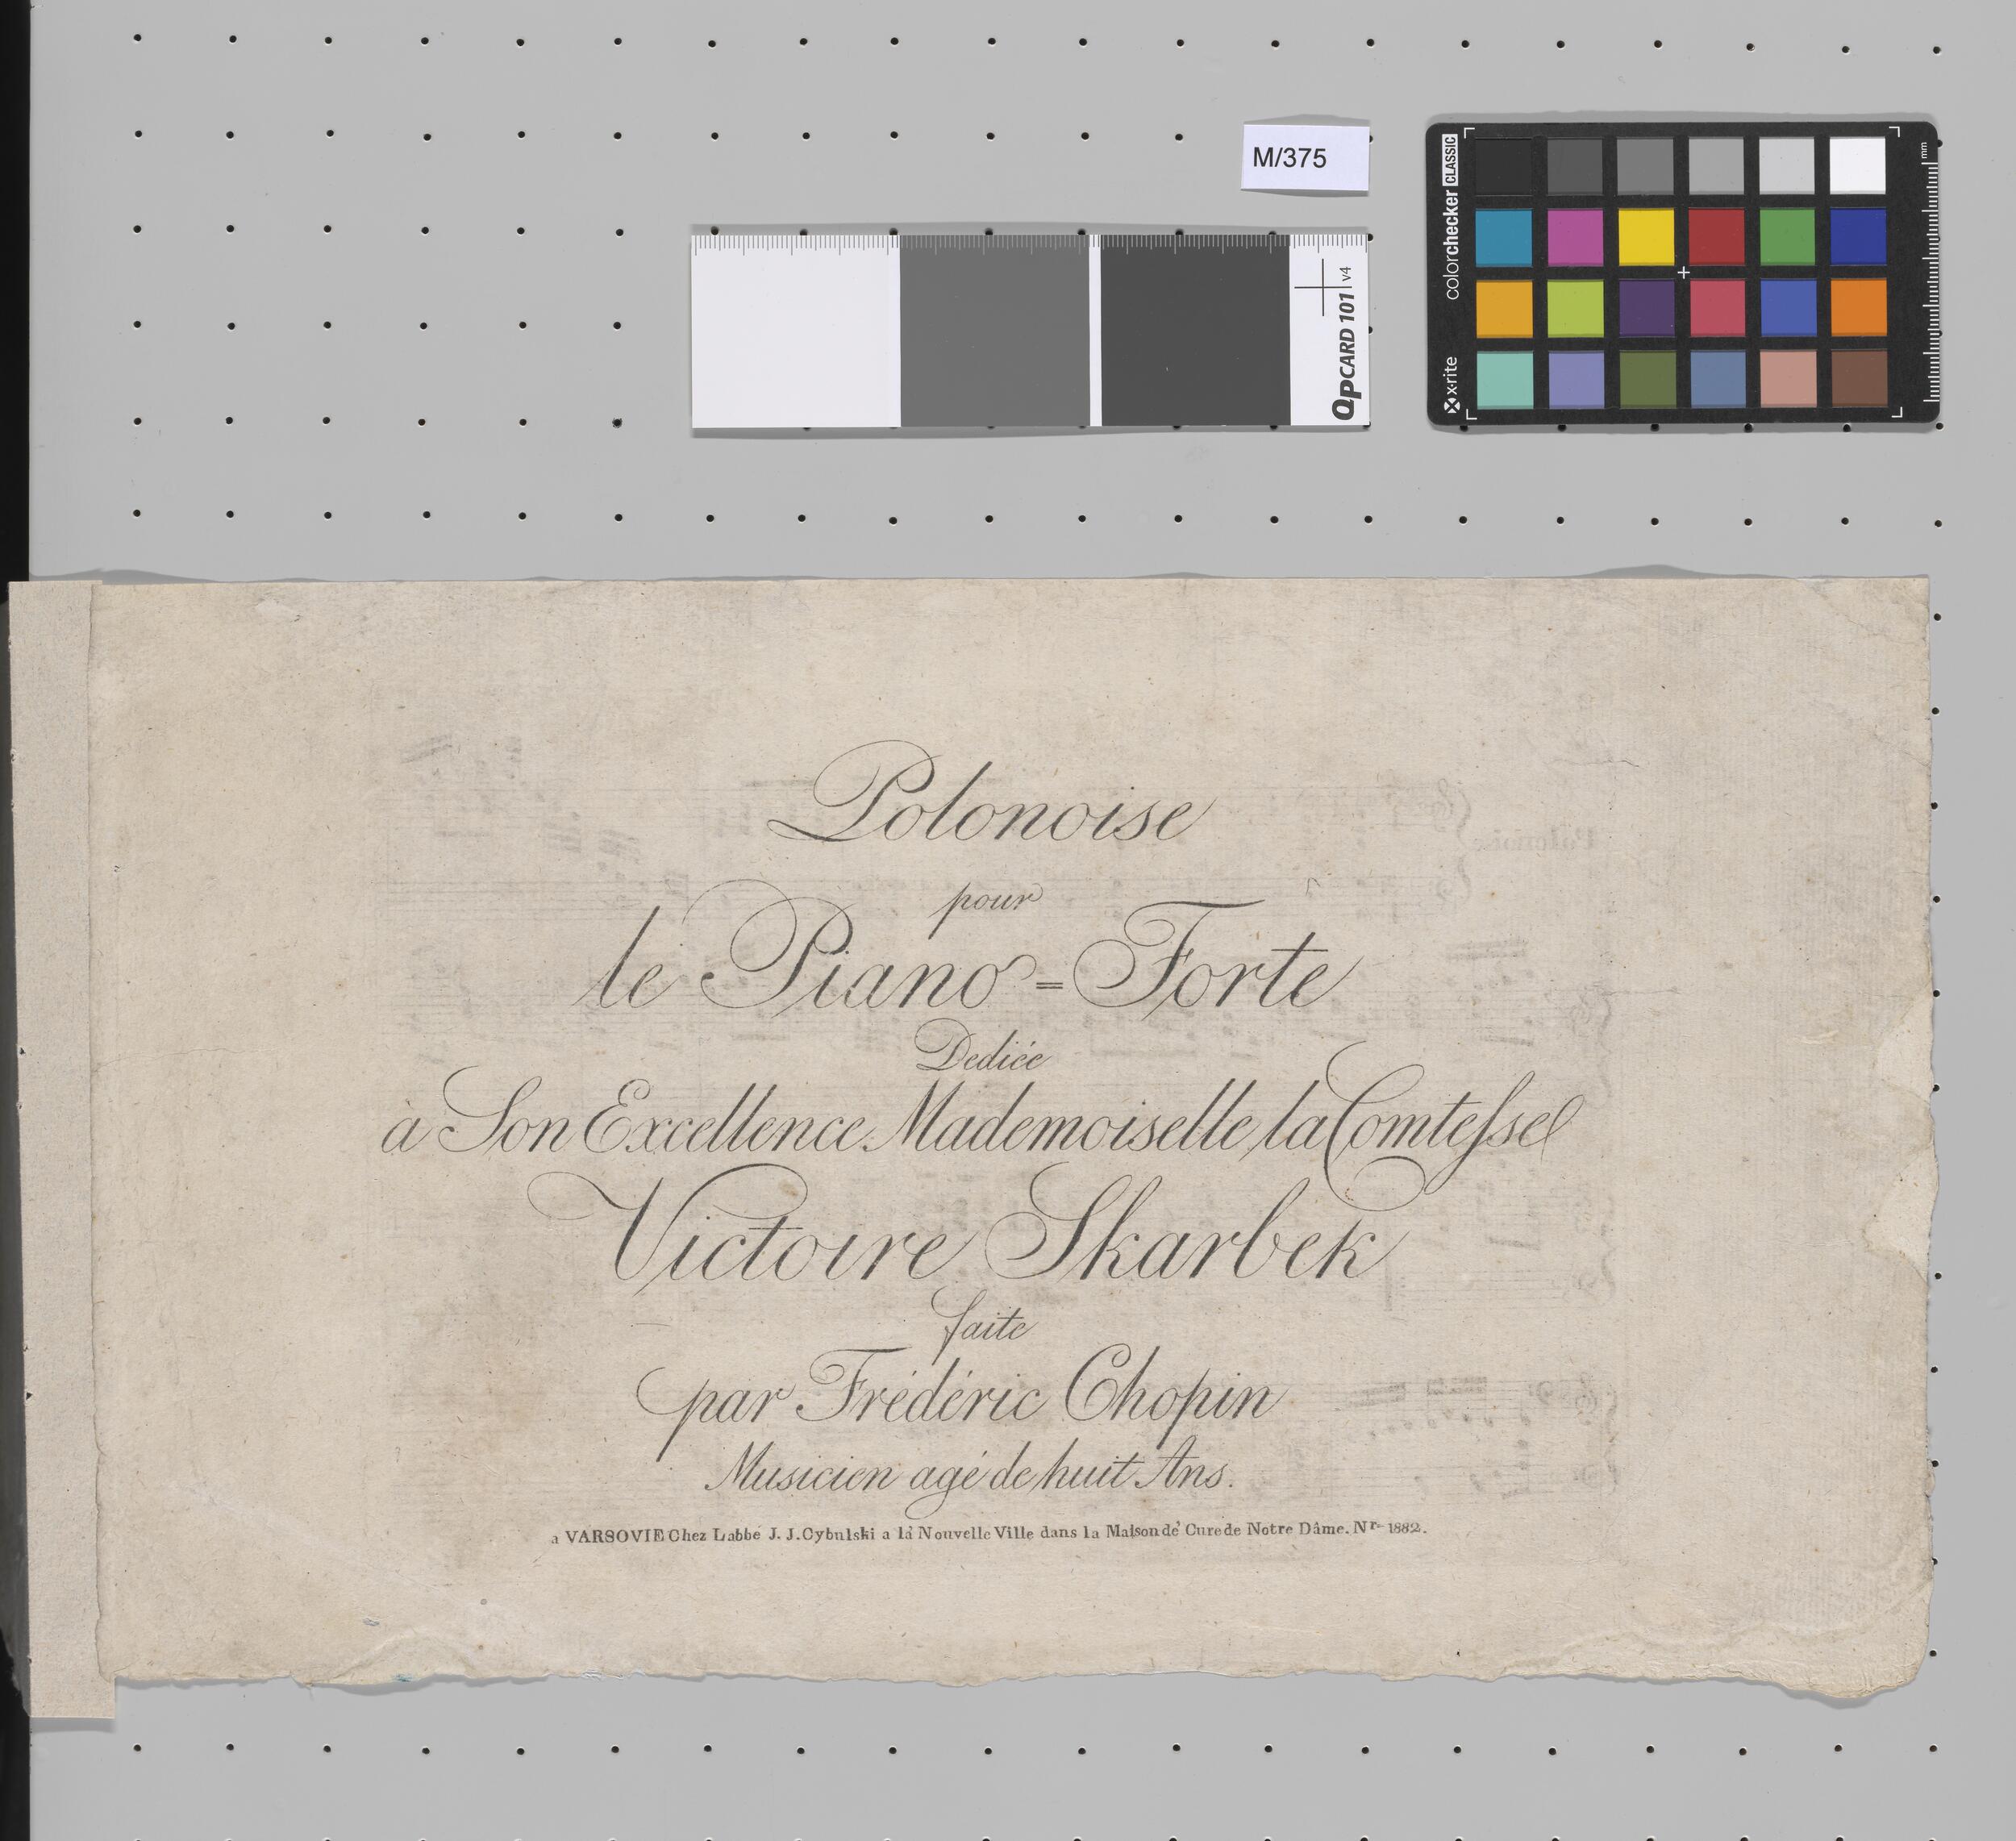 M/375
colorchecker CLASSIC
x-rite
mm
QPCARD 101 v4
Polonoise
pour
le Piano=Forte
Dediée
à Son Excellence Mademoiselle la Comteſse
Victoire Skarbek
faite
par Frédéric Chopin
Musicien agé de huit Ans.
a VARSOVIE Chez Labbé J. J. Cybulski a la Nouvelle Ville dans la Maison de Cure de Notre Dâme. Nr. 1882.
Polonoise